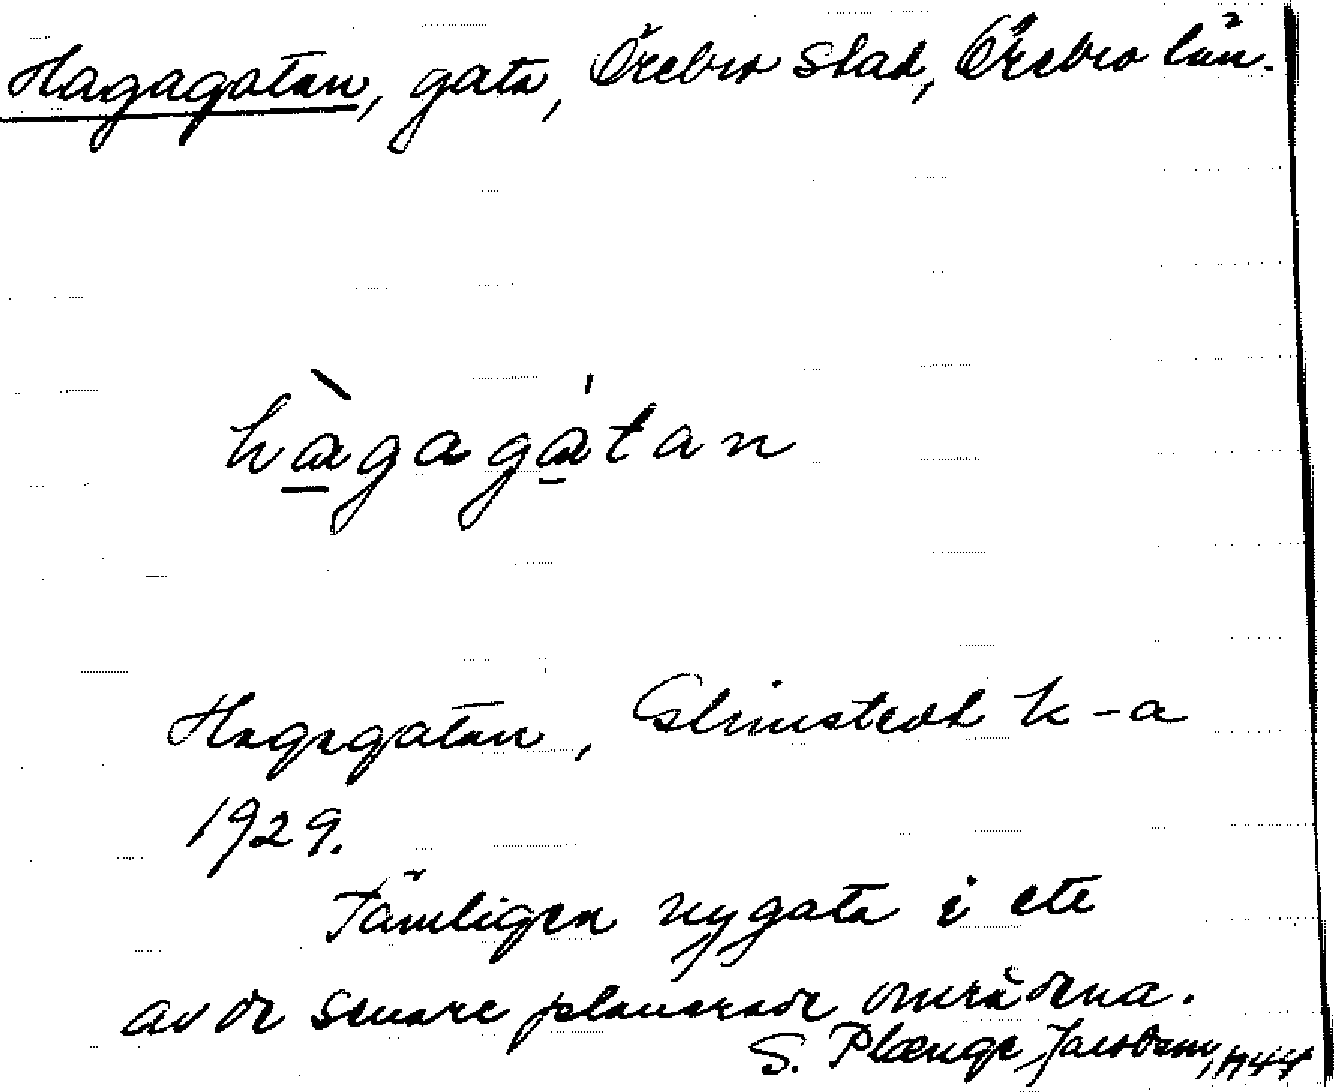 Hagagatan, gata, Örebro stad, Örebro län.
hàgagátan
Hagagatan, Elmstedt k-a
1929.
Tämligen ny gata i ett
av de senare planerade områdena.
S. Plænge Jacobson, 1944